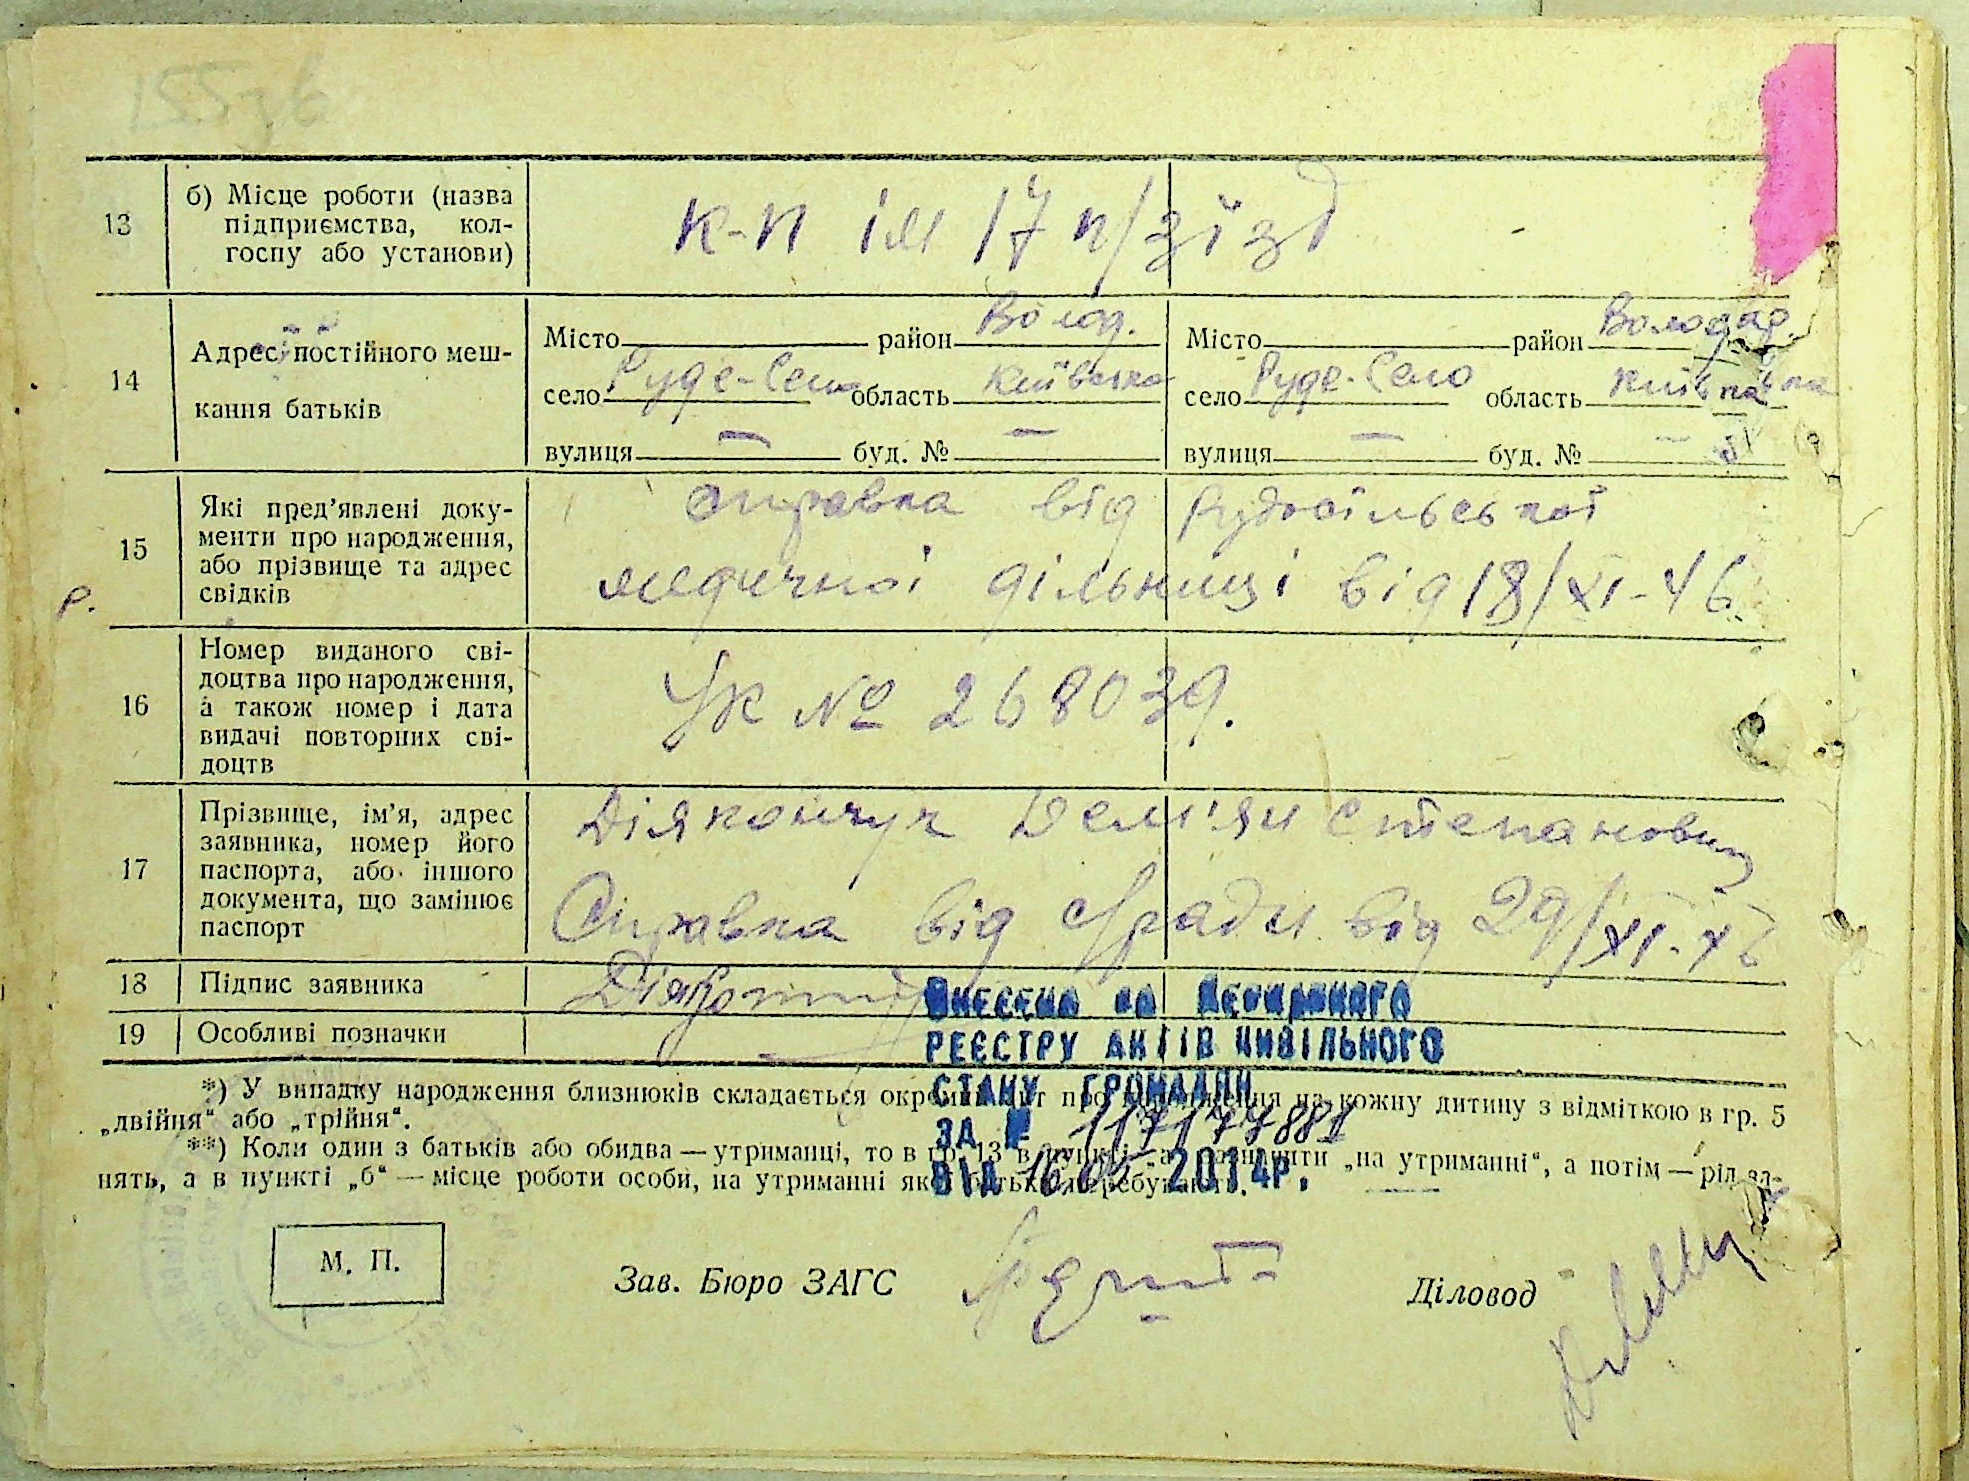 155зв
13 б) Місце роботи (назва
підприємства, кол-
госпу або установи)
к-п ім 17 п/зїзд -
14 Адрес постійного меш-
кання батьків
Місто район Волод.
село Руде-Село область Київська
вулиця — буд. № —
Місто район Володар.
село Руде-Село область Київська
вулиця — буд. № —
15 Які пред’явлені доку-
менти про народження,
або прізвище та адрес
свідків
Справка від Рудосільської
медичної дільниці від 18/XI-46
р.
16 Номер виданого сві-
доцтва про народження,
а також номер і дата
видачі повторних сві-
доцтв
УК № 268039.
17 Прізвище, ім’я, адрес
заявника, номер його
паспорта, або іншого
документа, що замінює
паспорт
Діякончук Дем'ян Степанович
Справка від с/ради від 29/XI-46
18 Підпис заявника
19 Особливі позначки
Внесено до Державного
реєстру актів цивільного
стану громадян
за № 117177881
від 16.05 2014р.
*) У випадку народження близнюків складається окремий акт про народження на кожну дитину з відміткою в гр. 5
„двійня“ або „трійня“.
**) Коли один з батьків або обидва — утриманці, то в гр. 13 в пункті „а“ зазначити „на утриманні“, а потім — рід за-
нять, а в пункті „б“ — місце роботи особи, на утриманні якої батьки перебувають.
М. П.
Зав. Бюро ЗАГС
Діловод